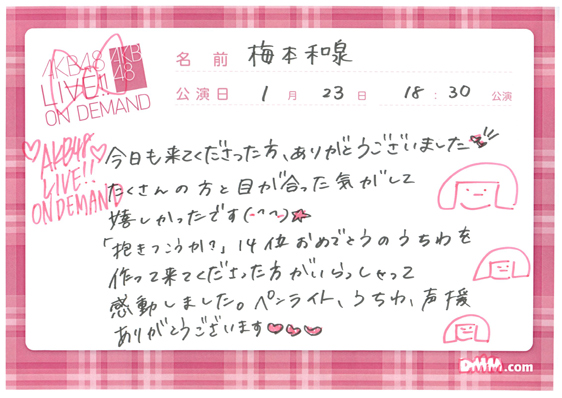 AKB48
LIVE!!
ON DEMAND
AKB
48
名前 梅本和泉
公演日 1月23日 18:30公演
AKB48
LIVE!!
ON DEMAND
今日も来てくださった方、ありがとうございました
たくさんの方と目が合った気がして
嬉しかったです(-^^-)
「抱きつこうか?」14位おめでとうのうちわを
作って来てくださった方がいらっしゃって
感動しました。ペンライト、うちわ、声援
ありがとうございます
DMM.com